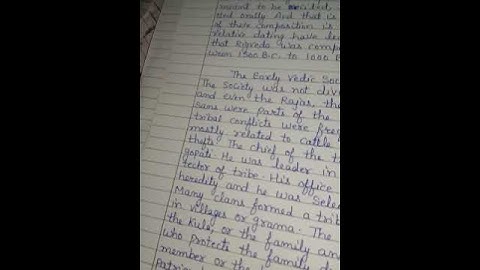 meant to be recited,
and orally. And that is
of their composition is
relativ dating have
that Rigveda was comp
ween 1500 B.C. to 1000 B
The Early Vedic Soc
The Society was not div
and even the Rajas, the
sans were parts of the
tribal conflicts were freq
mostly related to cattle
thefts. The chief of the t
gopati. He was leader in
tector of tribe. His office
heredity and he was sele
Many clans formed a trib
in villages or grama. The
the Kula, or the family an
who protects the family d
member or the